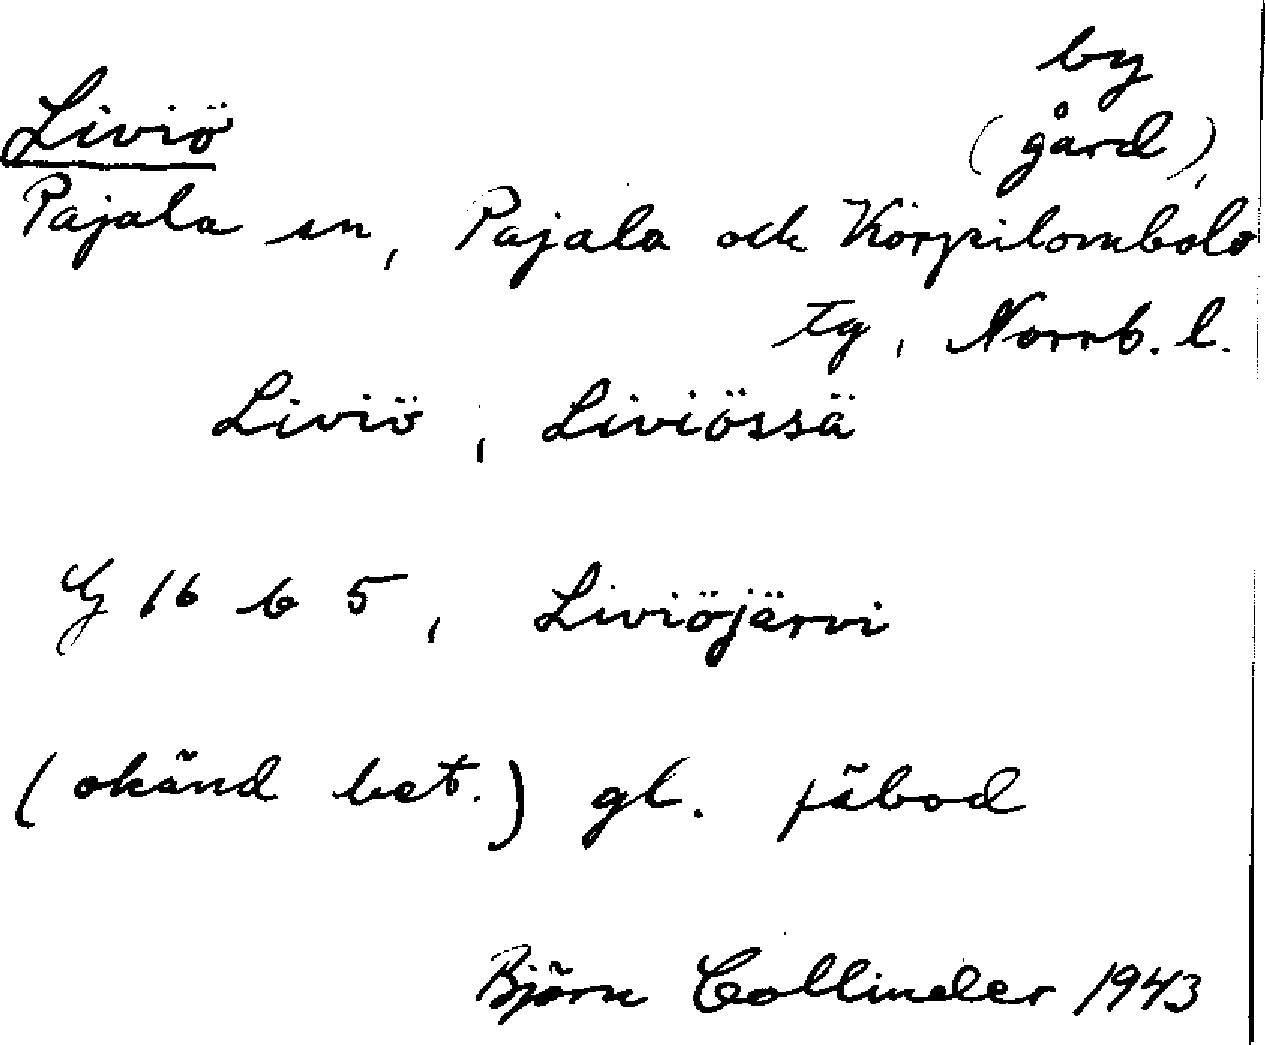 by
Liviö (gård),
Pajala sn, Pajala och Korpilombolo
tg, Norrb. l.
Liviö, Liviössä
G 16 b 5, Liviöjärvi
(okänd bet.) gl. fäbod
Björn Collinder 1943